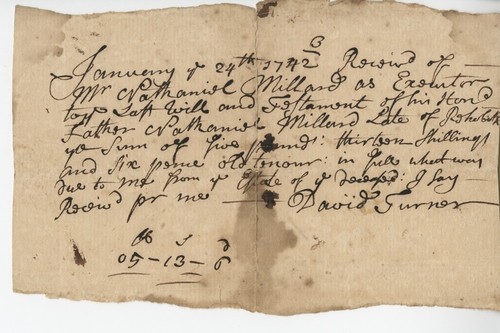 January ye 24th 1742/3 Receivd of
Mr Nathaniel Millard as Executor
to ye Last Will and Testament of his Hond
Father Nathaniel Millard Late of Rehoboth
ye Sum of five pounds: thirteen Shillings
and six pence old tenour: in full what was
due to me from ye Estate of ye Deceasd: I say
Receivd pr me David Turner
lb S d
05-13-6